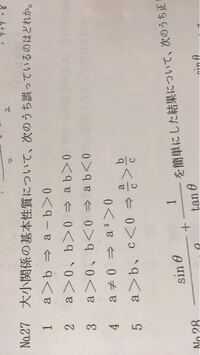 No.27 大小関係の基本性質について、次のうち誤っているのはどれか。
1 a＞b ⇒ a－b＞0
2 a＞0、b＞0 ⇒ ab＞0
3 a＞0、b＜0 ⇒ ab＜0
4 a≠0 ⇒ a²＞0
5 a＞b、c＜0 ⇒ a/c＞b/c
No.28
を簡単にした結果について、次のうち正
1/sinθ + 1/tanθ